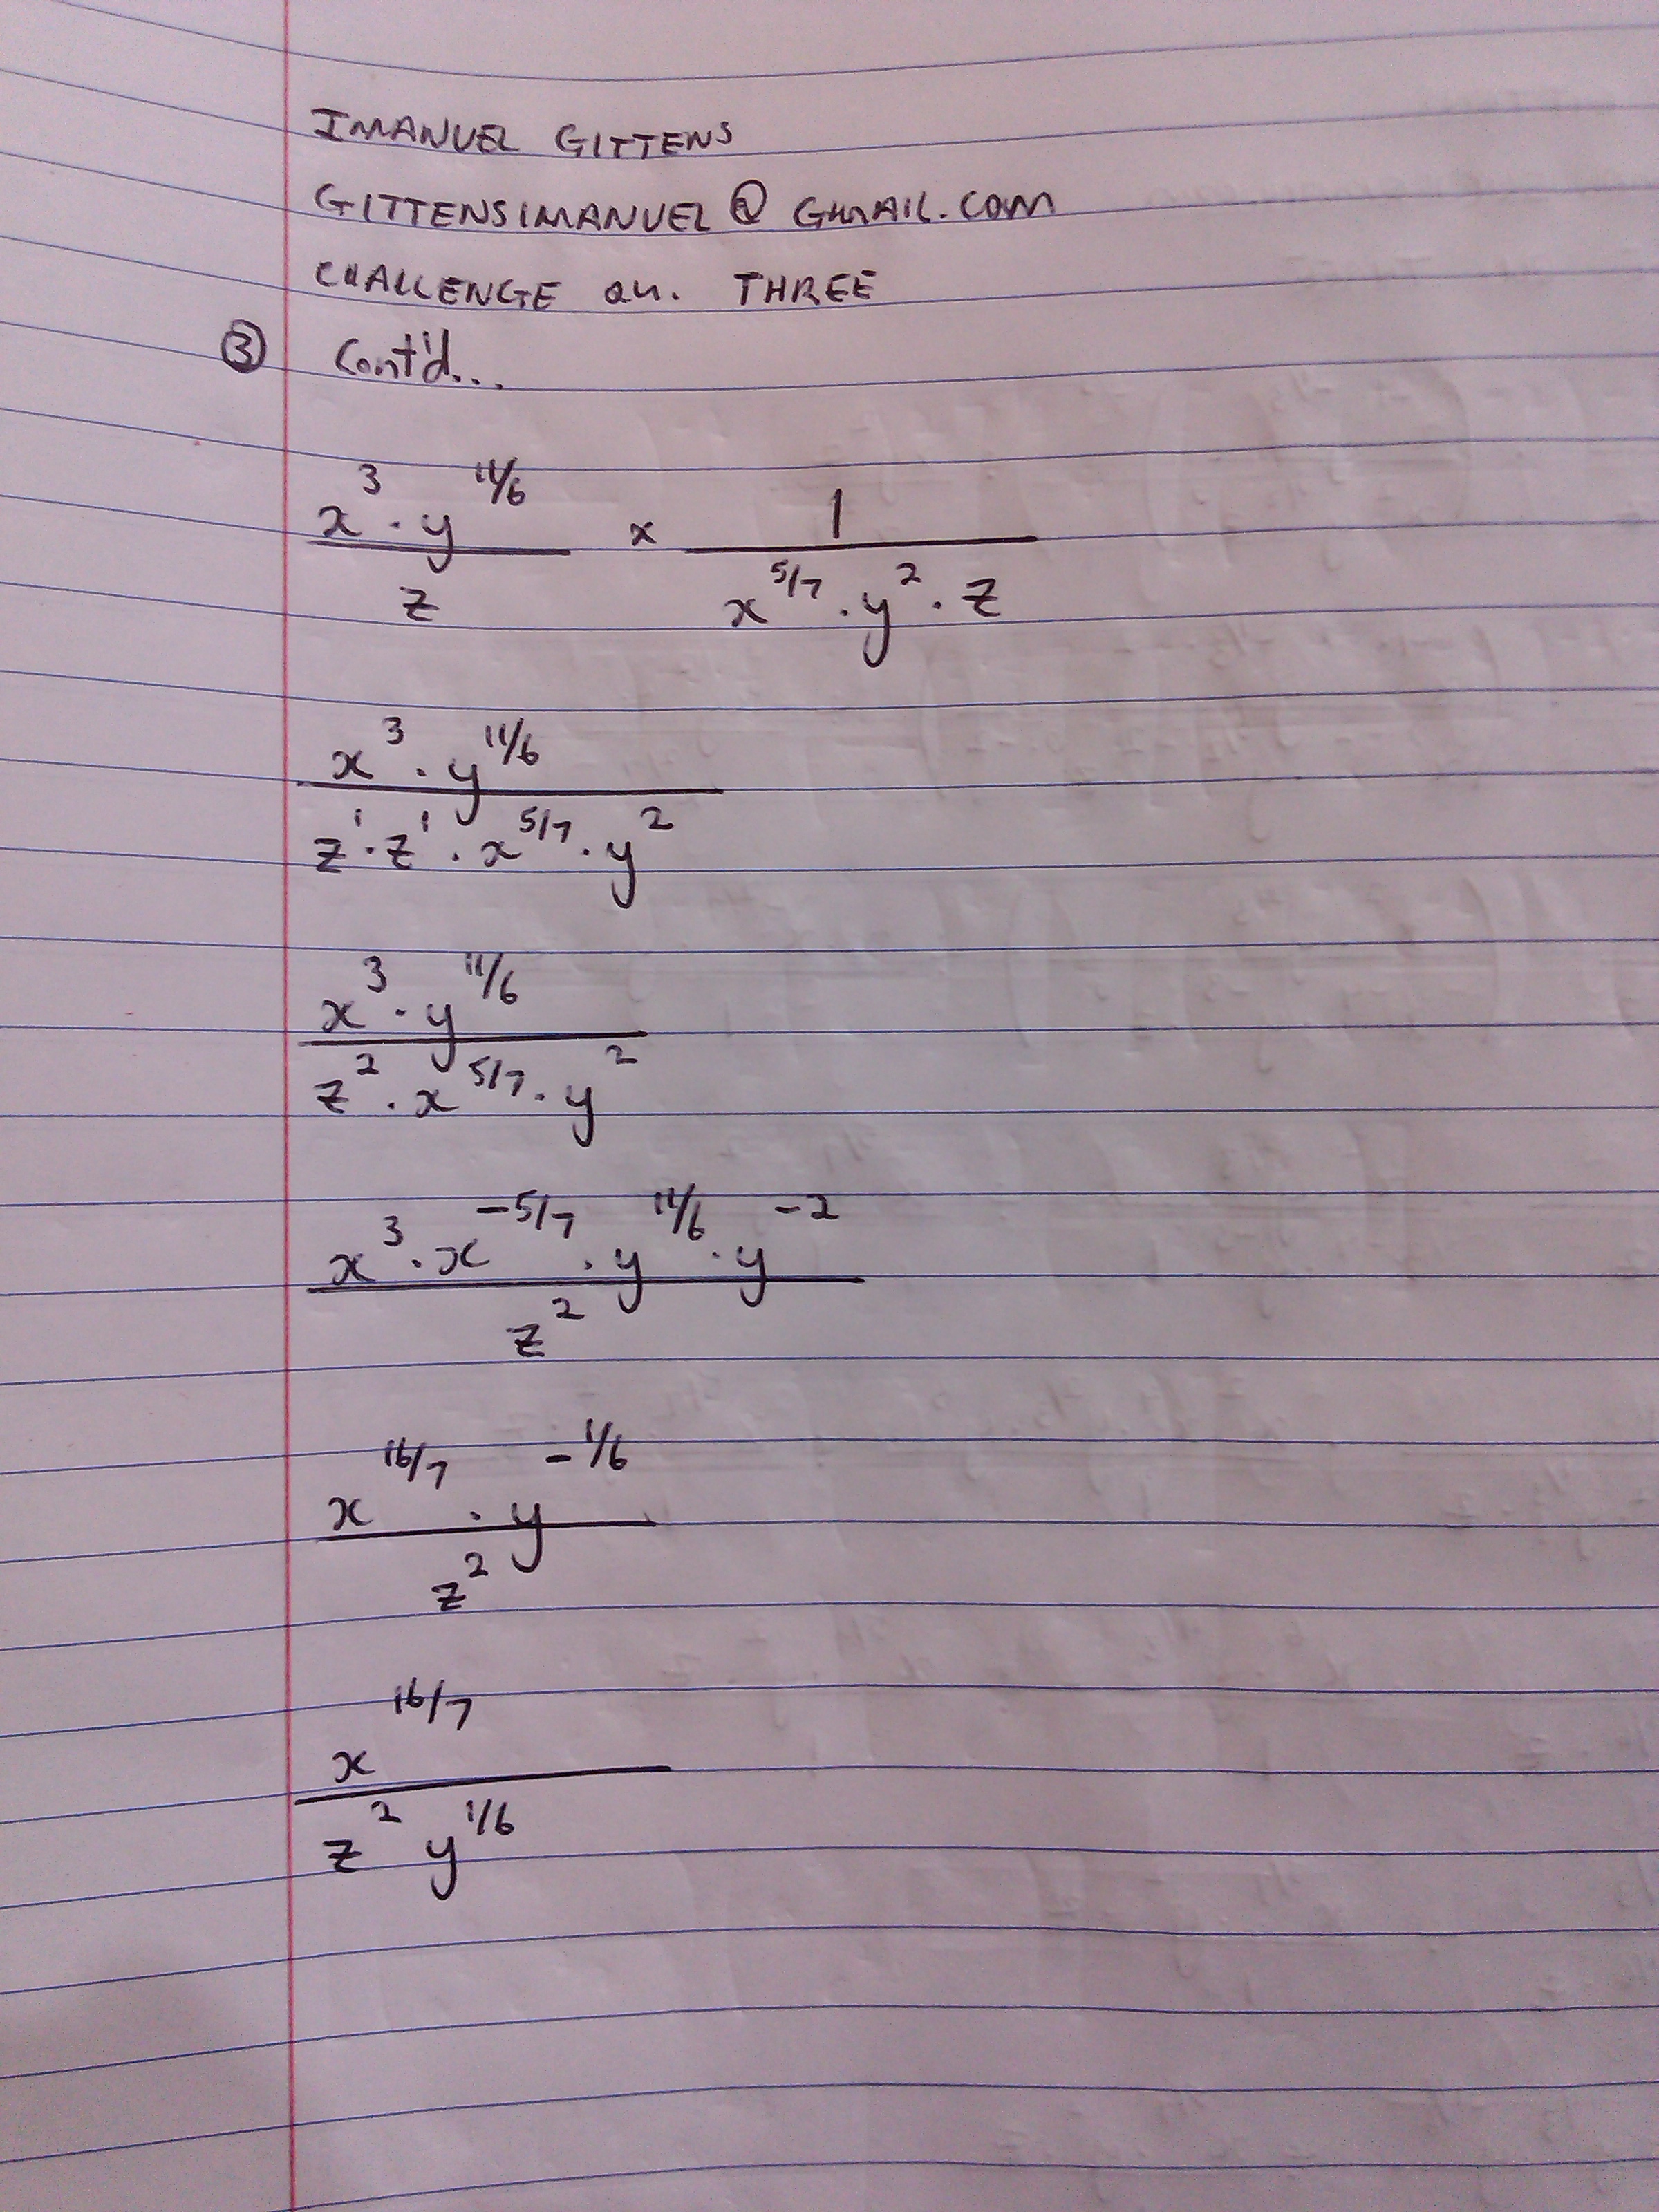 IMANUEL GITTENS
GITTENSIMANUEL@GMAIL.COM
CHALLENGE QU. THREE
③ Cont'd...
x^3 · y^11/6 / z × 1 / x^5/7 · y^2 · z
x^3 · y^11/6 / z^1 · z^1 · x^5/7 · y^2
x^3 · y^11/6 / z^2 · x^5/7 · y^2
x^3 · x^-5/7 · y^11/6 · y^-2 / z^2
x^16/7 · y^-1/6 / z^2
x^16/7 / z^2 y^1/6